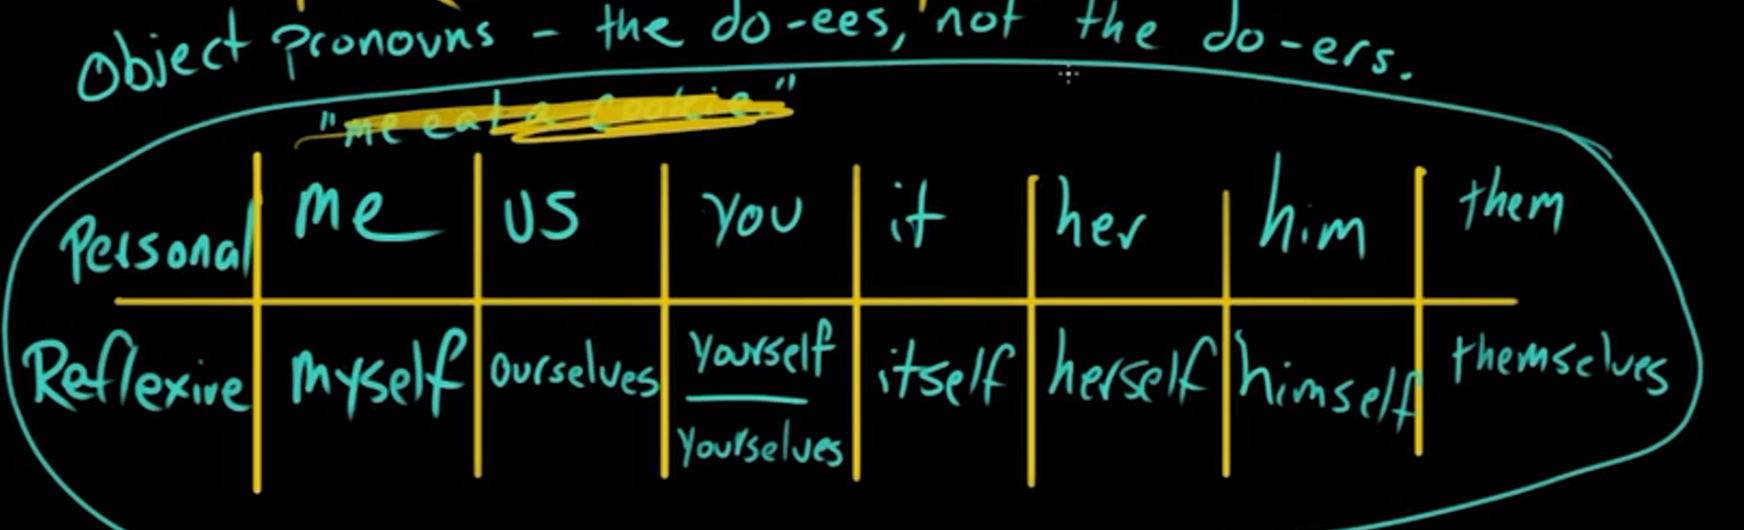 Object pronouns - the do-ees, not the do-ers.
"me eat a cookie."
Personal me us you it her him them
Reflexive myself ourselves yourself itself herself himself themselves
yourselves